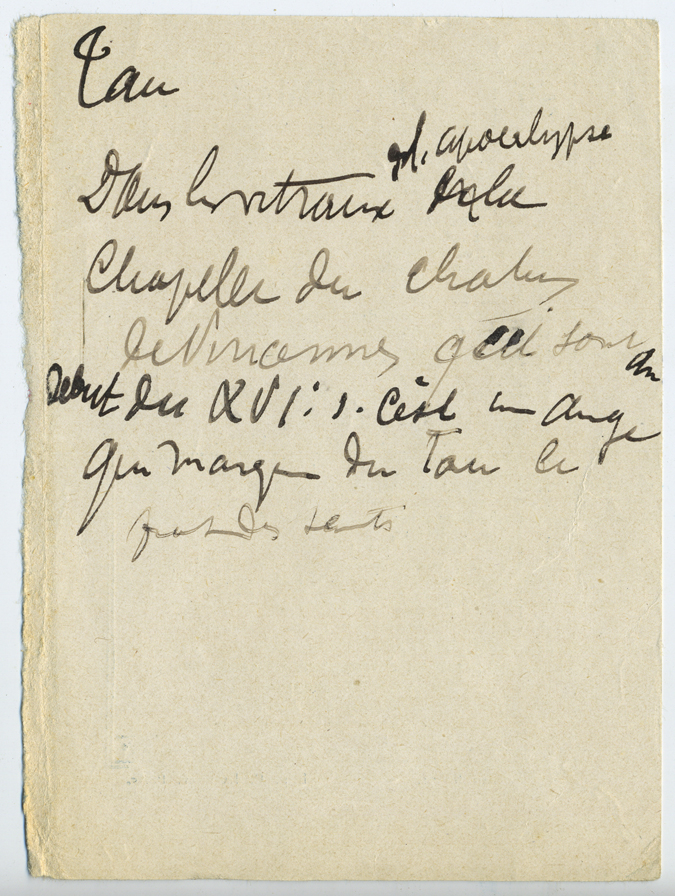 Tau
apocalypse
Dans les vitraux de la
Chapelle du chateau
de Vincennes qui sont du
début du XVI: s. c'est un ange
qui marque du Tau le
front des saints